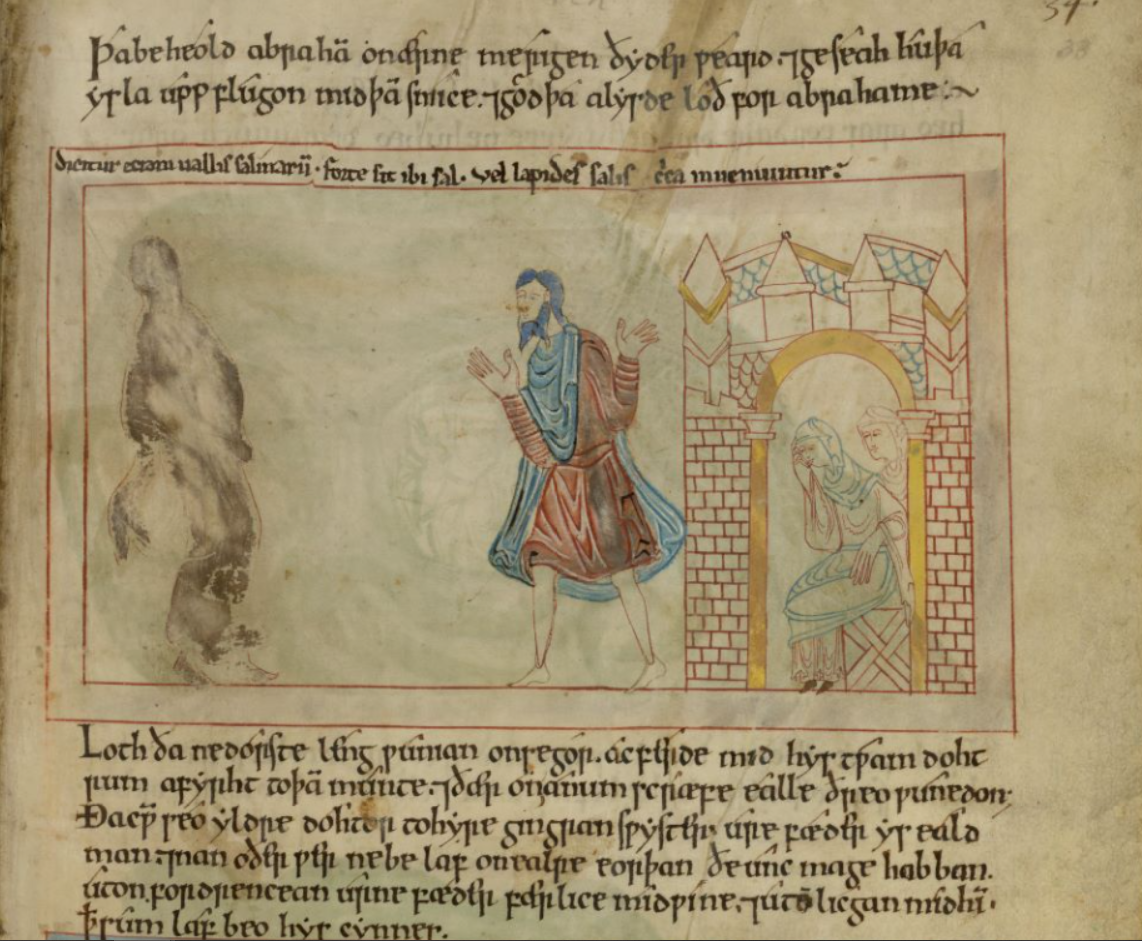 34.
Þa beheold abrahā on ærne merigen ðyder ƿeard. ⁊ geseah hu þa
ysla upp flugon mid þā smice. ⁊ gōd þa alysde lōð for abrahame:~
dicitur eciam uallis salinarū · forte sic ibi sal · vel lapides salis inueniuntur
Loth ða ne dorste leng ƿunian on segor. ac ferde mid hys tƿam doht
rum afyrht to þā munte. ⁊ ðær on anum scræfe ealle ðreo ƿunedon
Ða cƿ̄ seo yldre dohtor to hyre gingran sƿyster. ure fæder ys eald
man. ⁊ nan oðer ƿer ne belaf on ealre eorþan ðe unc mage habban.
uton fordrencean urne fæder færlice mid ƿine. ⁊ utō licgan mid hī.
ꝥ sum laf beo hys cynnes.